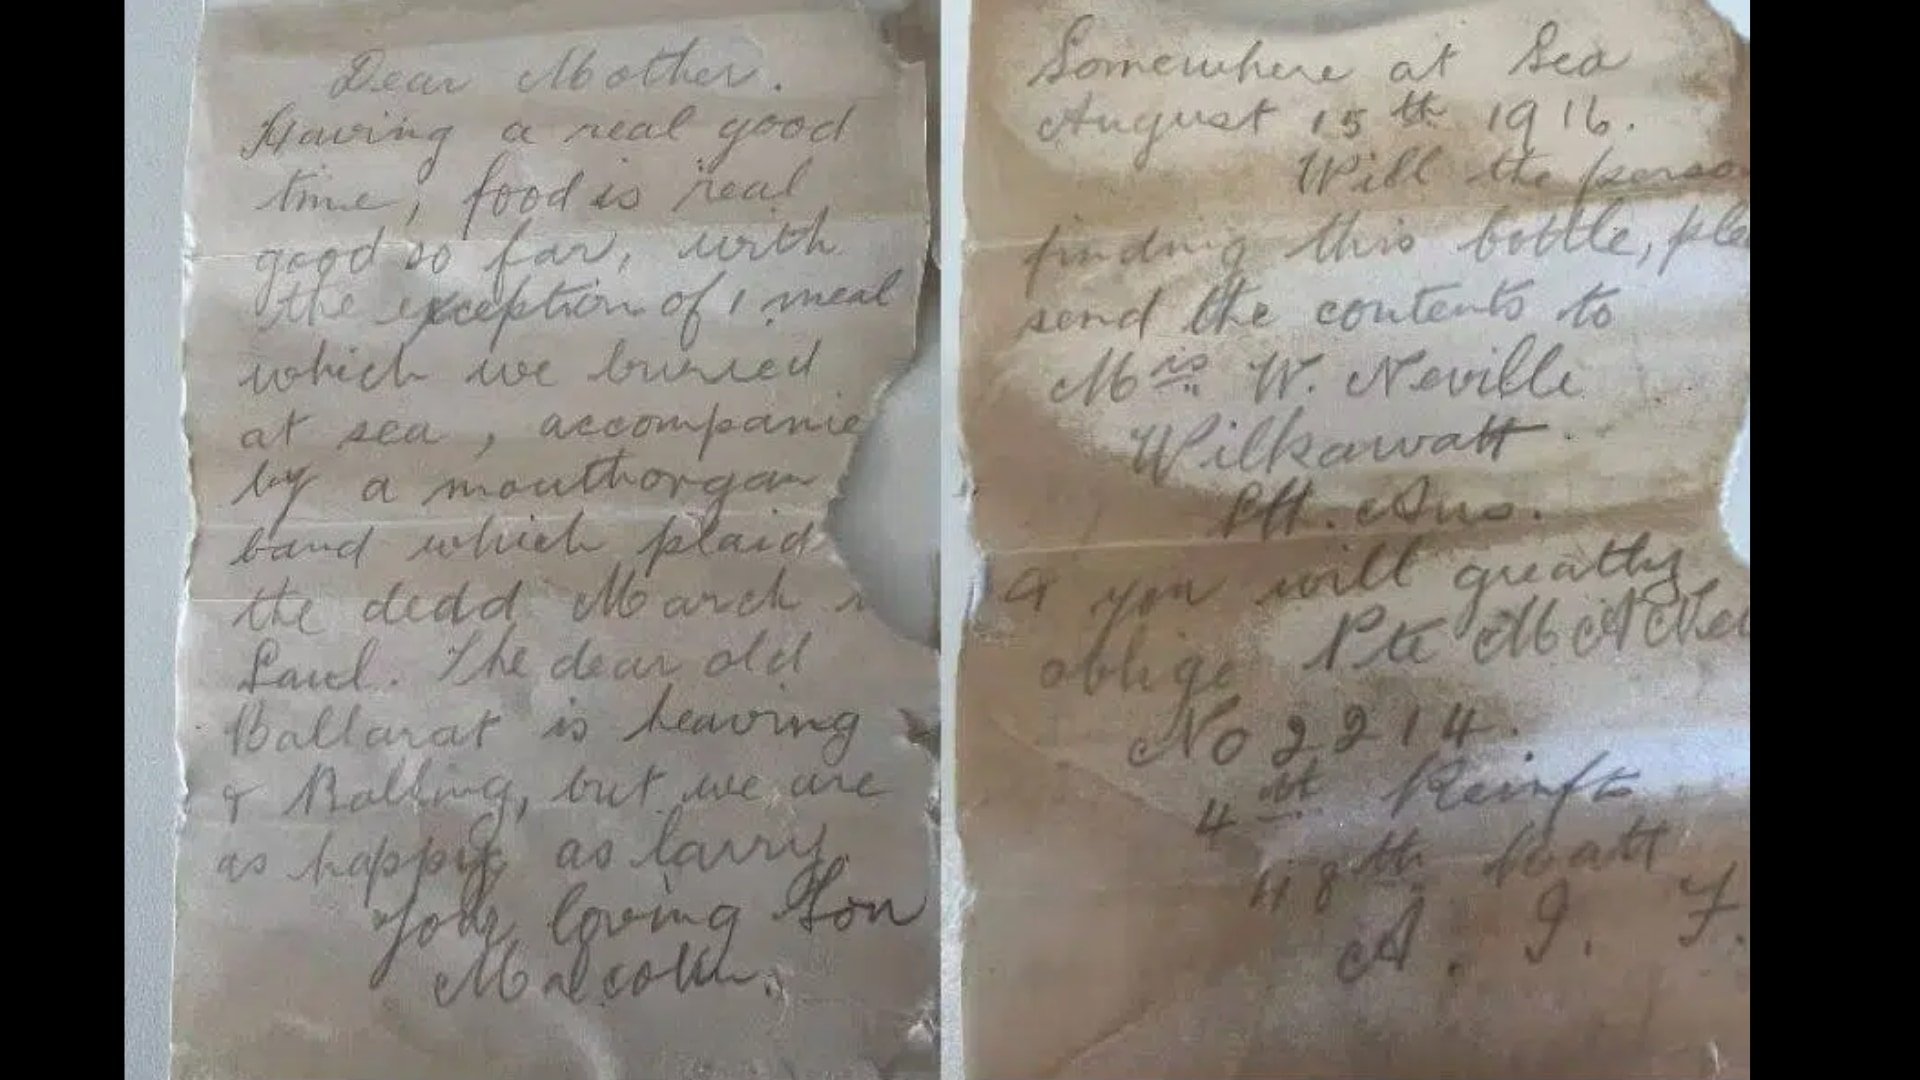 Dear Mother.
Having a real good
time, food is real
good so far, with
the exception of 1 meal
which we buried
at sea, accompanie
by a mouthorgan
band which plaid
the dedd March
Saul. The dear old
Ballarat is heaving
& Rolling, but we are
as happy as larry.
Your loving Son
Malcolm.
Somewhere at Sea
August 15th 1916.
Will the perso
finding this bottle, ple
send the contents to
W. Neville
Wilkawatt
Sth. Aus.
& you will greatly
oblige Pte M A Nev
No 2214.
4th Reinfts
48th Batt
A. I. F.